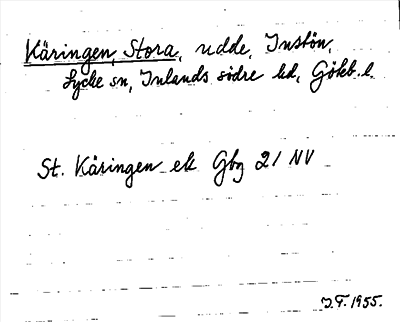 Käringen, Stora, udde, Instön,
Lycke sn, Inlands södre hd, Göteb. l.
St. Käringen ek Gbg 21 NV
J.F. 1955.